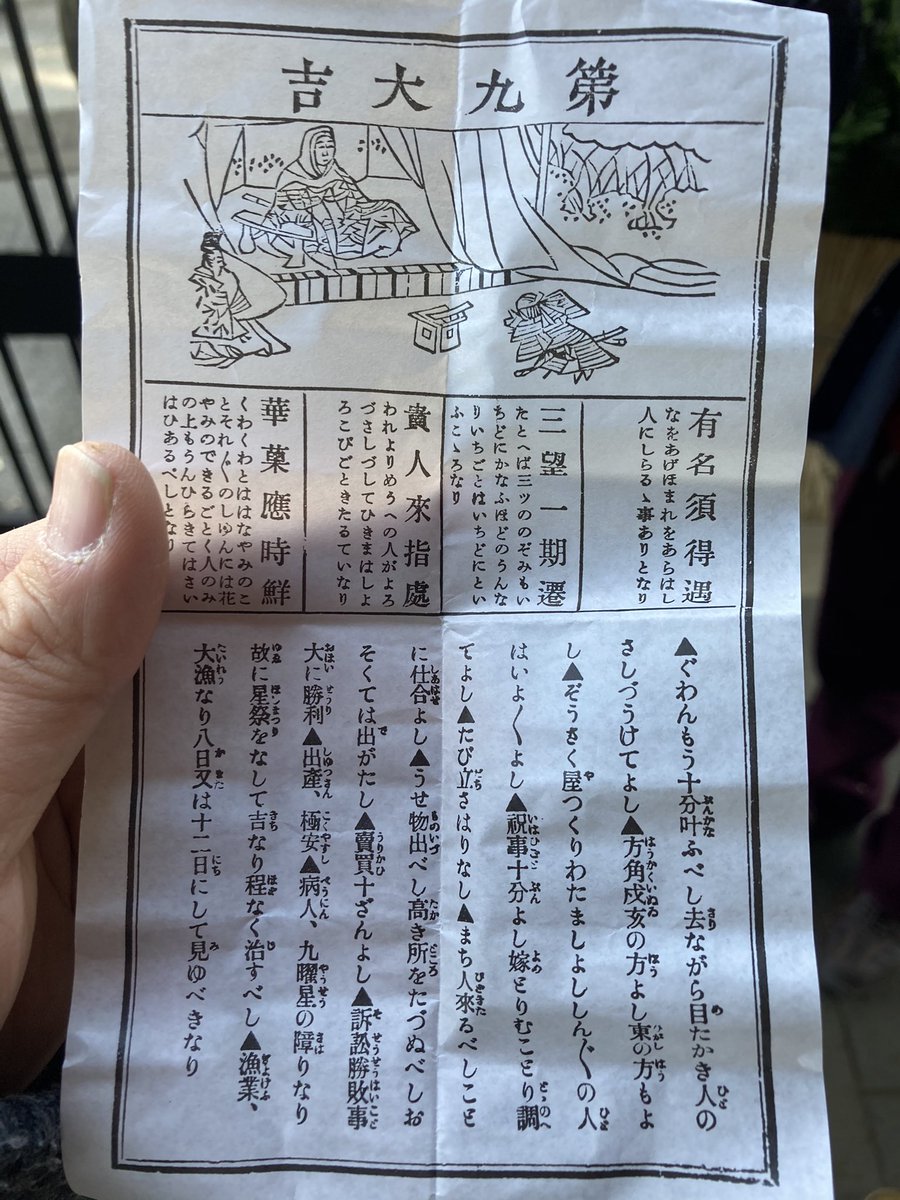 第九大吉
有名須得遇
なをあげほまれをあらはし
人にしらるゝ事ありとなり
三望一期遷
たとへば三ツののぞみもい
ちどにかなふほどのうんな
りいちごとはいちどにとい
ふこゝろなり
貴人來指處
われよりめうへの人がよろ
づさしづしてひきまはしよ
ろこびごときたるていなり
華菓應時鮮
くわくわとははなやみのこ
とそれ〴〵のしゆんには花
やみのできるごとく人のみ
の上もうんひらきてはさい
はひあるべしとなり
▲ぐわんもう十分叶ふべし去ながら目たかき人の
さしづうけてよし▲方角戌亥の方よし東の方もよ
し▲ぞうさく屋つくりわたましよししん〴〵の人
はいよ〳〵よし▲祝事十分よし嫁とりむことり調
てよし▲たび立さはりなし▲まち人來るべしこと
に仕合よし▲うせ物出べし高き所をたづぬべしお
そくては出がたし▲賣買十ざんよし▲訴訟勝敗事
大に勝利▲出產、極安▲病人、九曜星の障りなり
故に星祭をなして吉なり程なく治すべし▲漁業、
大漁なり八日又は十二日にして見ゆべきなり